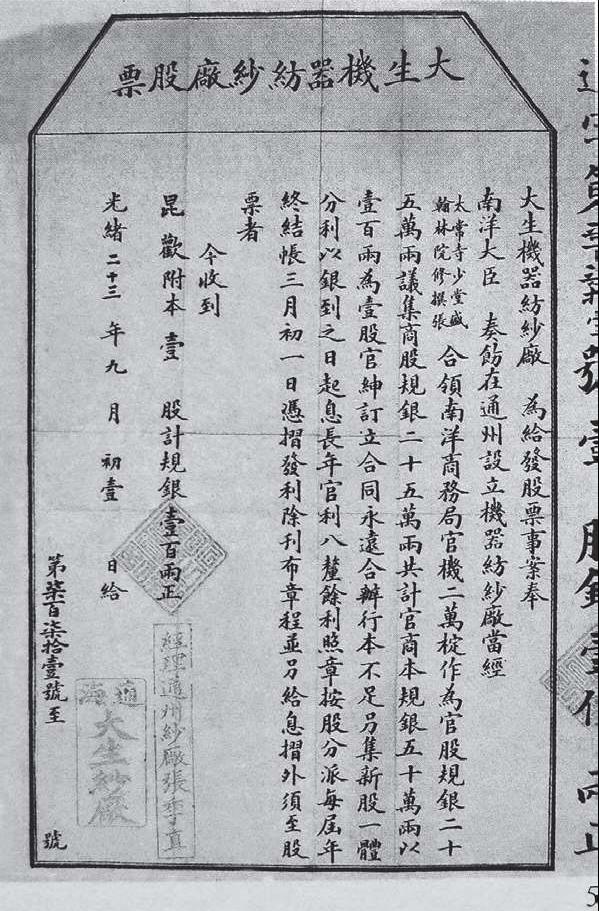 大生機器紡紗廠股票
大生機器紡紗廠　為給發股票事案奉
南洋大臣　奏飭在通州設立機器紡紗廠當經
太常寺少堂盛
翰林院修撰張
合領南洋商務局官機二萬椗作為官股規銀二十
五萬兩議集商股規銀二十五萬兩共計官商本規銀五十萬兩以
壹百兩為壹股官紳訂立合同永遠合辦行本不足另集新股一體
分利以銀到之日起息長年官利八釐餘利照章按股分派每屆年
終結帳三月初一日憑摺發利除刊布章程並另給息摺外須至股
票者
今收到
昆歡附本壹　股計規銀壹百兩正
光緒二十三年九月初壹日給
經理通州紗廠張季直
通海
大生紗廠
第柒百柒拾壹號至　號
5